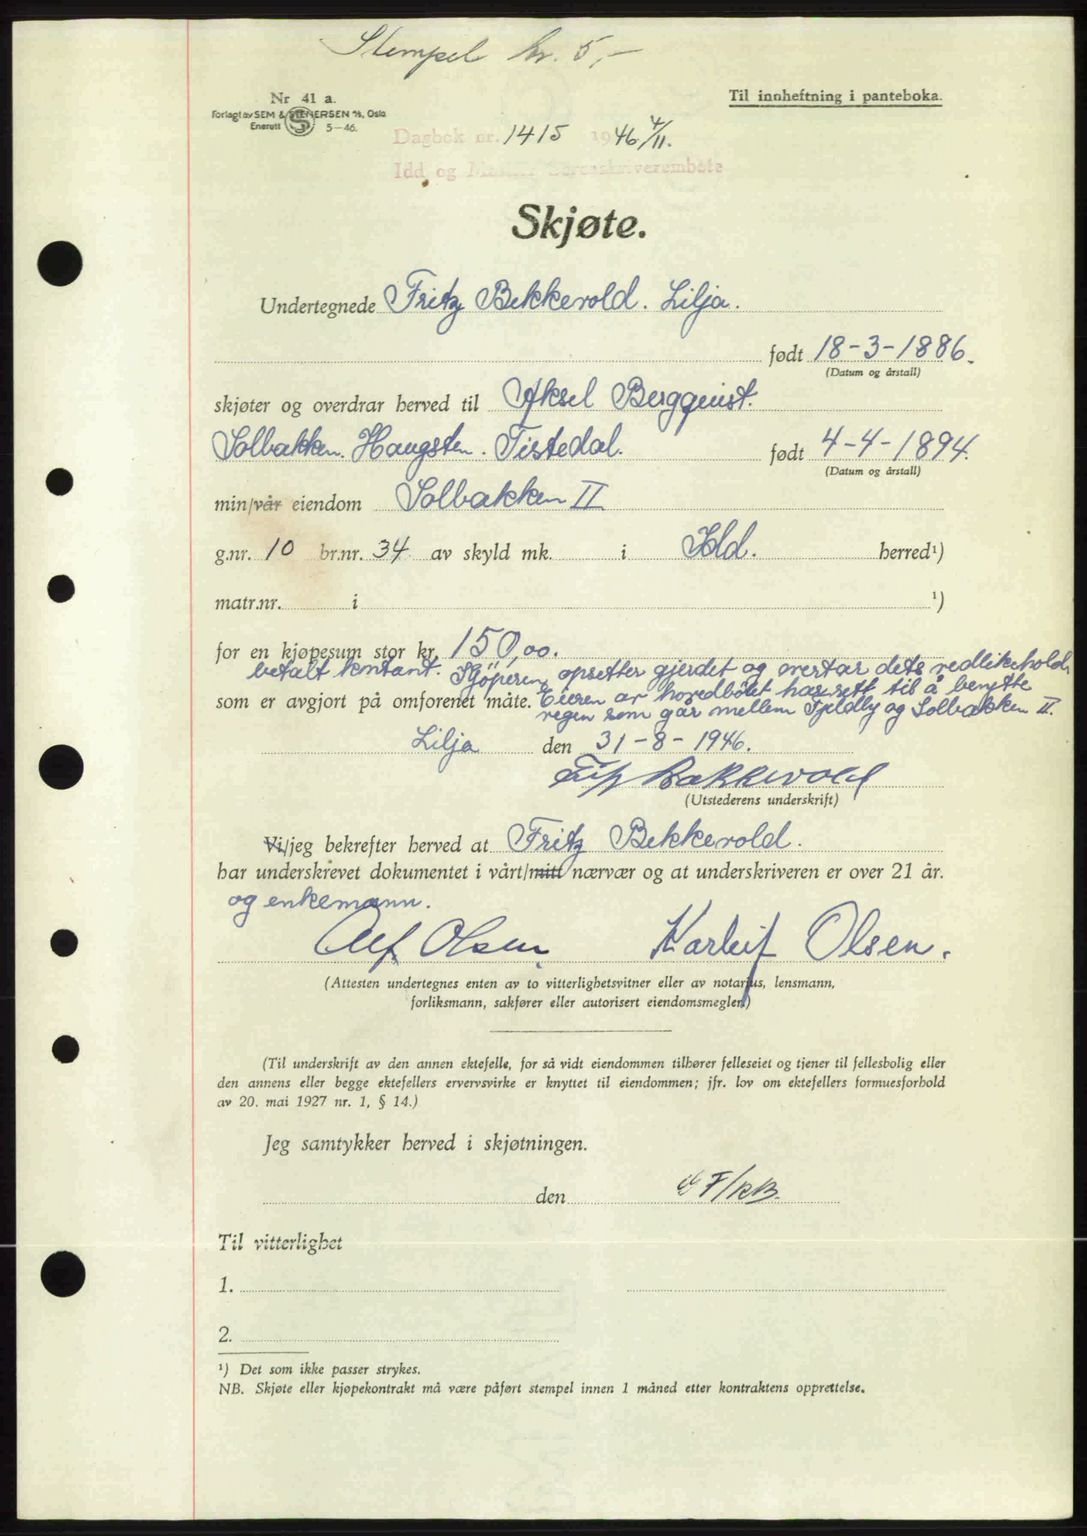 Stempel kr. 5,-
Nr 41 a.
Forlagt av SEM & STENERSEN A/S, Oslo
Enerett 5-46.
Til innheftning i panteboka.
Dagbok nr. 1415 1946 4/11.
Idd og Marker Sorenskriverembete
Skjøte.
Undertegnede Fritz Bekkevold. Lilja.
født 18-3-1886.
(Datum og årstall)
skjøter og overdrar herved til Aksel Bergquist.
Solbakken. Haugsten. Tistedal. født 4-4-1894.
(Datum og årstall)
min/vår eiendom Solbakken II
g.nr. 10 br.nr. 34 av skyld mk. i Idd. herred¹)
matr.nr. i ¹)
for en kjøpesum stor kr. 150,00.
betalt kontant. Kjöperen opsetter gjerdet og overtar dets vedlikehold,
som er avgjort på omforenet måte. Eieren av hovedbölet har rett til å benytte
vegen som går mellem Fjeldly og Solbakken II.
Lilja den 31-8-1946.
Fritz Bekkevold
(Utstederens underskrift)
Vi/jeg bekrefter herved at Fritz Bekkevold.
har underskrevet dokumentet i vårt/mitt nærvær og at underskriveren er over 21 år.
og enkemann.
Alf Olsen. Karleif Olsen.
(Attesten undertegnes enten av to vitterlighetsvitner eller av notarius, lensmann,
forliksmann, sakfører eller autorisert eiendomsmegler.)
(Til underskrift av den annen ektefelle, for så vidt eiendommen tilhører felleseiet og tjener til fellesbolig eller
den annens eller begge ektefellers ervervsvirke er knyttet til eiendommen; jfr. lov om ektefellers formuesforhold
av 20. mai 1927 nr. 1, § 14.)
Jeg samtykker herved i skjøtningen.
den
Til vitterlighet
1.
2.
¹) Det som ikke passer strykes.
NB. Skjøte eller kjøpekontrakt må være påført stempel innen 1 måned etter kontraktens opprettelse.